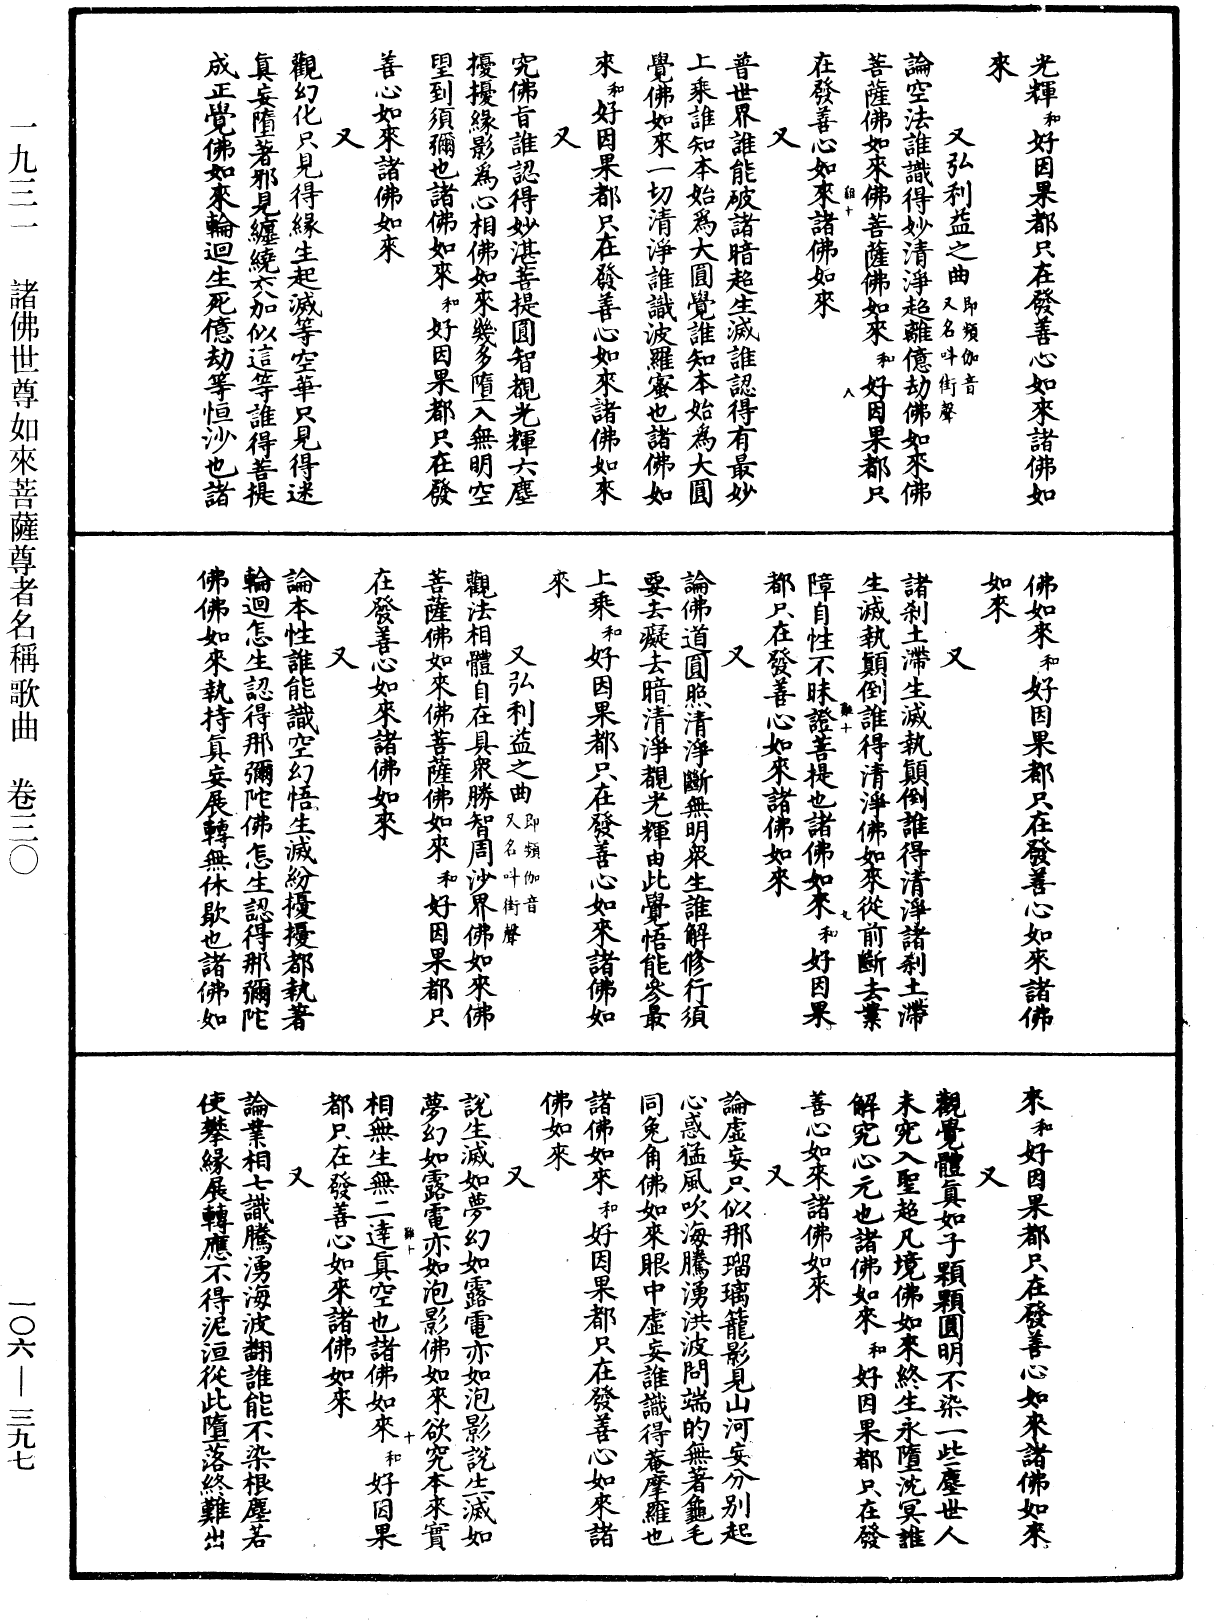 光輝和好因果都只在發善心如來諸佛如
來
又弘利益之曲即頻伽音又名叫街聲
論空法誰識得妙清淨超離億劫佛如來佛
菩薩佛如來佛菩薩佛如來和好因果都只
在發善心如來諸佛如來
又
普世界誰能破諸暗超生滅誰認得有最妙
上乘誰知本始為大圓覺誰知本始為大圓
覺佛如來一切清淨誰識波羅蜜也諸佛如
來和好因果都只在發善心如來諸佛如來
又
究佛旨誰認得妙湛菩提圓智覩光輝六塵
擾擾緣影為心相佛如來幾多墮入無明空
望到須彌也諸佛如來和好因果都只在發
善心如來諸佛如來
又
觀幻化只見得緣生起滅等空華只見得迷
真妄墮著邪見纏繞六加似這等誰得菩提
成正覺佛如來輪迴生死億劫等恒沙也諸
佛如來和好因果都只在發善心如來諸佛
如來
又
諸刹土滯生滅執顛倒誰得清淨諸刹土滯
生滅執顛倒誰得清淨佛如來從前斷去業
障自性不昧證菩提也諸佛如來和好因果
都只在發善心如來諸佛如來
又
論佛道圓照清淨斷無明眾生誰解修行須
要去癡去暗清淨覩光輝由此覺悟能參最
上乘和好因果都只在發善心如來諸佛如
來
又弘利益之曲即頻伽音又名叫街聲
觀法相體自在具衆勝智周沙界佛如來佛
菩薩佛如來佛菩薩佛如來和好因果都只
在發善心如來諸佛如來
又
論本性誰能識空幻悟生滅紛擾擾都執著
輪迴怎生認得那彌陀佛怎生認得那彌陀
佛佛如來執持真妄展轉無休歇也諸佛如
來和好因果都只在發善心如來諸佛如來
又
觀覺體真如子顆顆圓明不染一些塵世人
未究入聖超凡境佛如來終生永墮沈冥誰
解究心元也諸佛如來和好因果都只在發
善心如來諸佛如來
又
論虛妄只似那瑠璃籠影見山河妄分別起
心惑猛風吹海騰湧洪波問端的無著龜毛
同兔角佛如來眼中虛妄誰識得菴摩羅也
諸佛如來和好因果都只在發善心如來諸
佛如來
又
說生滅如夢幻如露電亦如泡影說生滅如
夢幻如露電亦如泡影佛如來欲究本來實
相無生無二達真空也諸佛如來和好因果
都只在發善心如來諸佛如來
又
論業相七識騰湧海波翻誰能不染根塵若
使攀緣展轉應不得泥洹從此墮落終難出
一九三一 諸佛世尊如來菩薩尊者名稱歌曲 卷三〇
一〇六—三九七